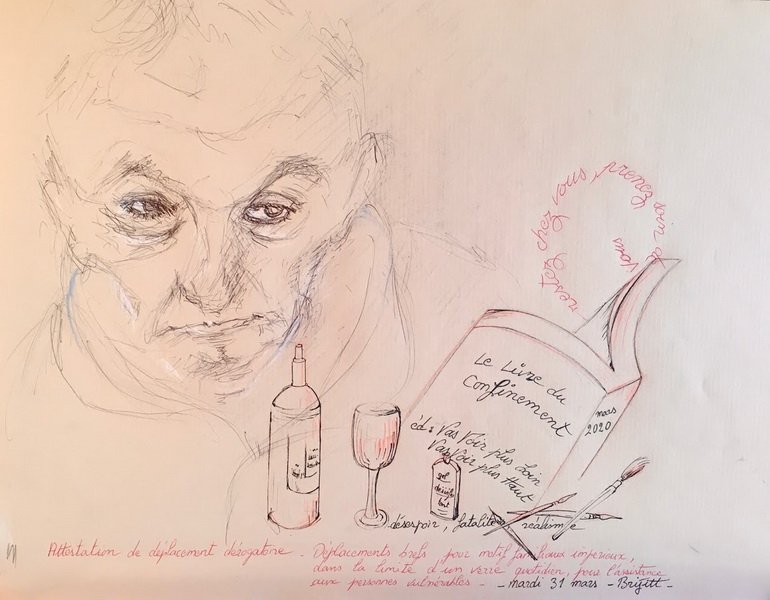 restez chez vous, prenez soin de vous
Le Livre du
Confinement
mars
2020
éd : Vas Voir plus Loin
Vas Voir plus Haut
gel
désinfec
tant
désespoir, fatalité, réalisme
Attestation de déplacement dérogatoire. Déplacements brefs pour motif familiaux impérieux,
dans la limite d'un verre quotidien, pour l'assistance
aux personnes vulnérables - - mardi 31 mars - Brigitt -